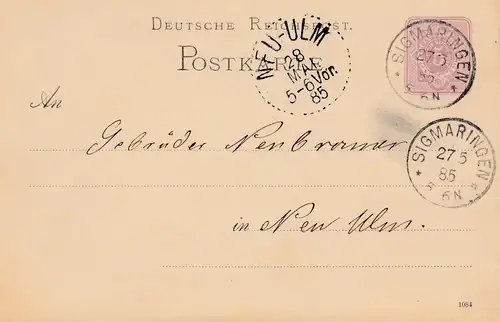 DEUTSCHE REICHSPOST.
POSTKARTE
NEU-ULM
28
MAI
5-6 Vor.
85
SIGMARINGEN
27 5
85
5 6N
SIGMARINGEN
27 5
85
5 6N
An
Gebrüder Neubronner
in Neu Ulm.
1084